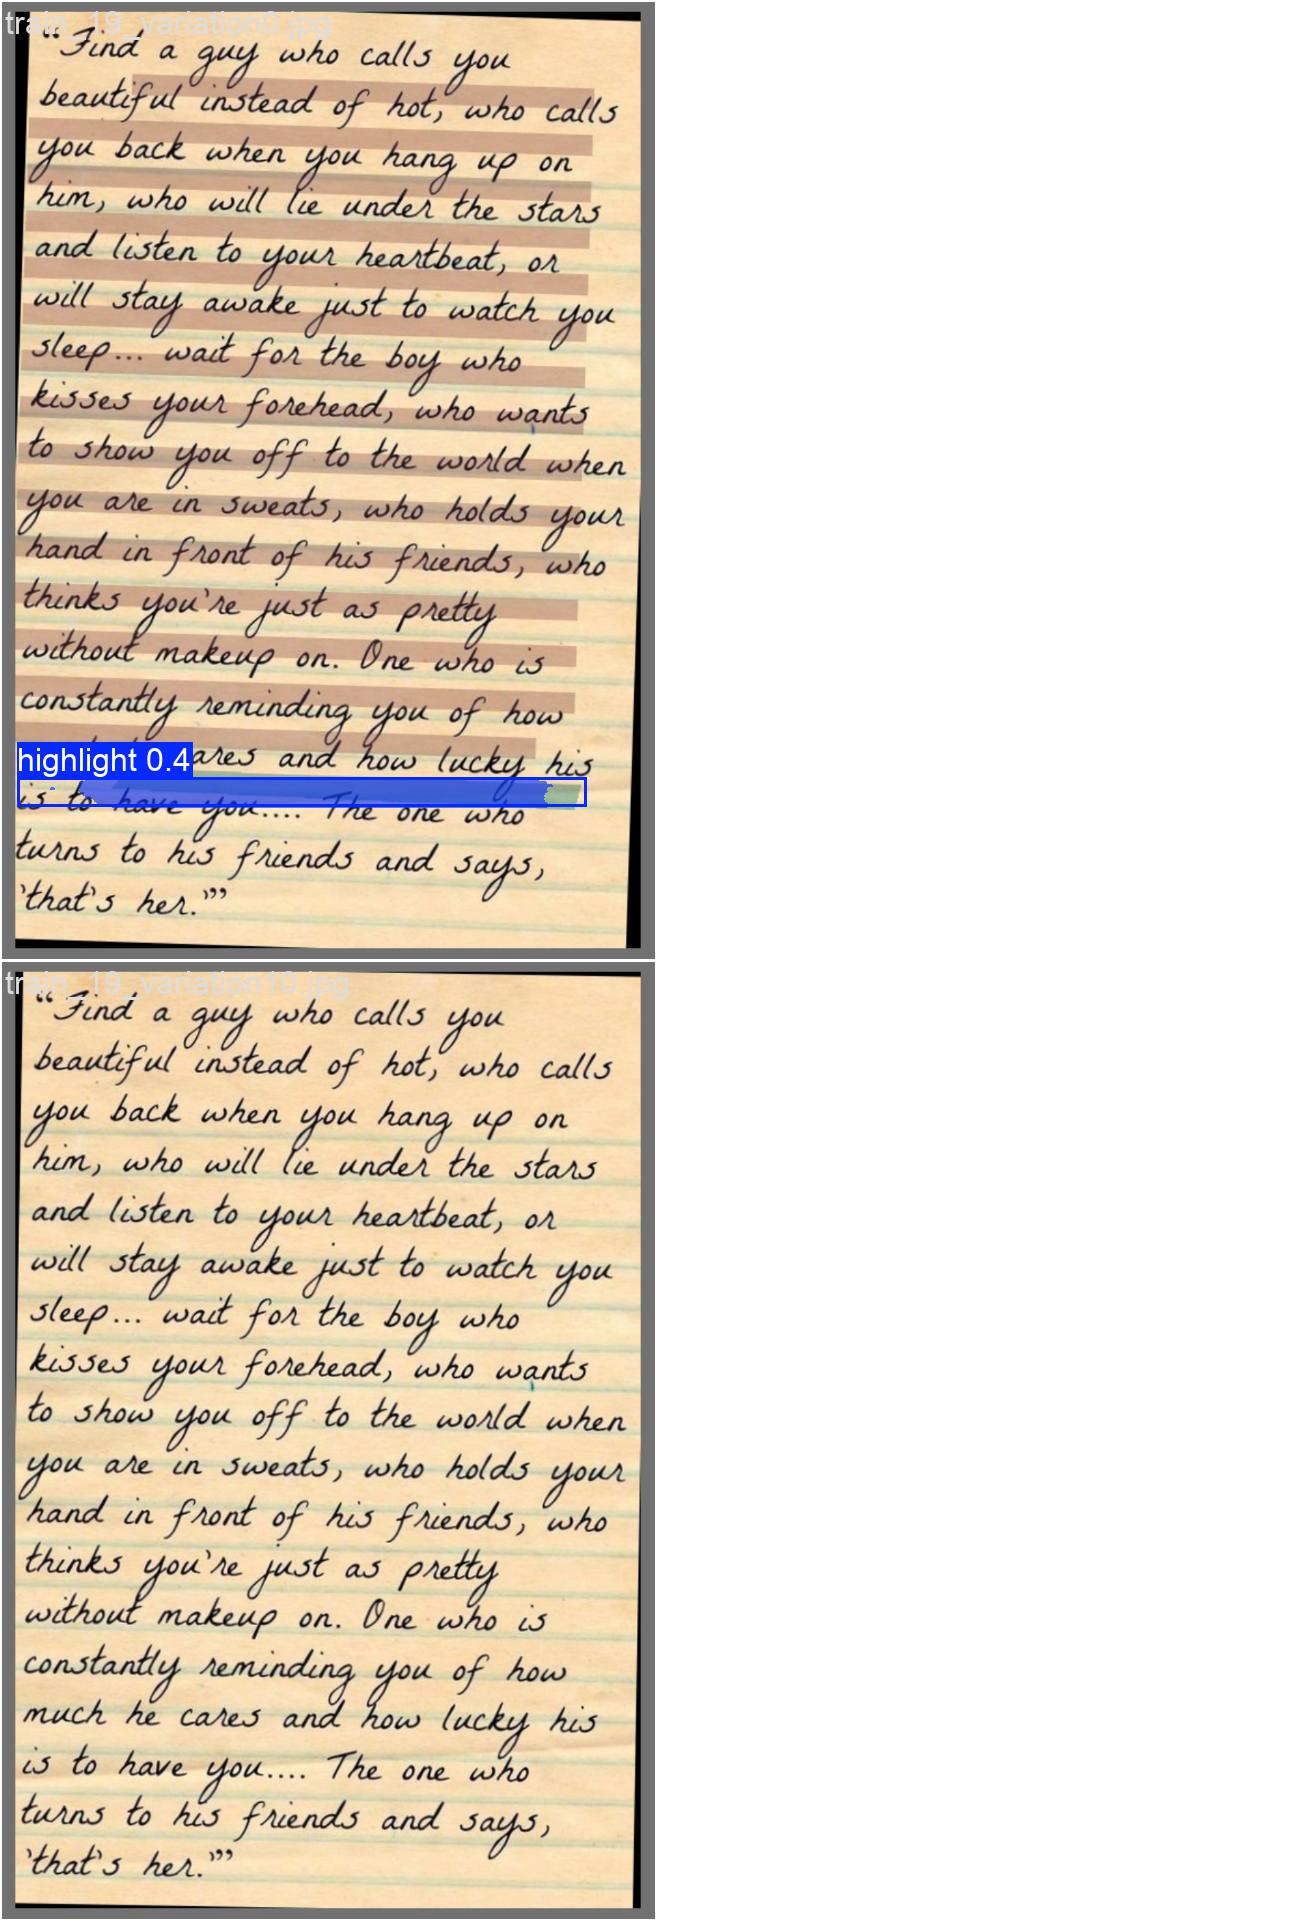 train_19_variation0.jpg
“Find a guy who calls you
beautiful instead of hot, who calls
you back when you hang up on
him, who will lie under the stars
and listen to your heartbeat, or
will stay awake just to watch you
sleep... wait for the boy who
kisses your forehead, who wants
to show you off to the world when
you are in sweats, who holds your
hand in front of his friends, who
thinks you're just as pretty
without makeup on. One who is
constantly reminding you of how
highlight 0.4
cares and how lucky his
is to have you.... The one who
turns to his friends and says,
'that's her.'”
train_19_variation10.jpg
“Find a guy who calls you
beautiful instead of hot, who calls
you back when you hang up on
him, who will lie under the stars
and listen to your heartbeat, or
will stay awake just to watch you
sleep... wait for the boy who
kisses your forehead, who wants
to show you off to the world when
you are in sweats, who holds your
hand in front of his friends, who
thinks you're just as pretty
without makeup on. One who is
constantly reminding you of how
much he cares and how lucky his
is to have you.... The one who
turns to his friends and says,
'that's her.'”